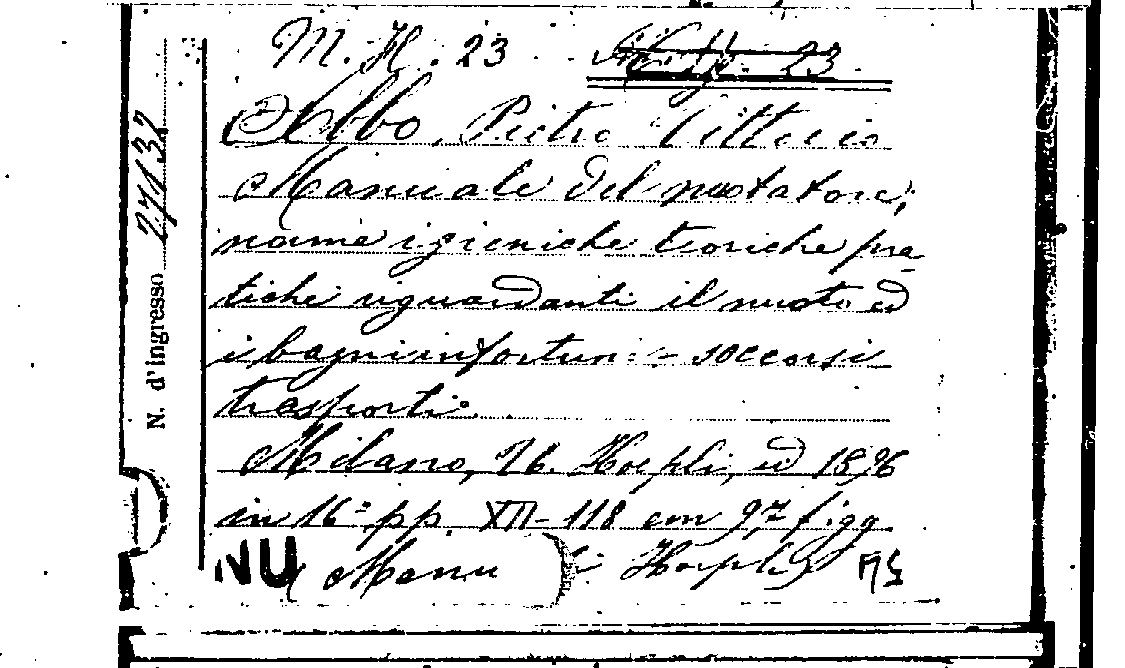 M. H. 23
N. d'Ingresso 27132
Abbo, Pietro Vittorio
Manuale del nuotatore;
norme igieniche teoriche pra
tiche riguardanti il nuoto ed
i bagni infortuni - soccorsi
trasporti.
Milano, U. Hoepli, ed 1896
in 16° pp. XII-118 con 97 figg.
NU
( Manu i Hoepli)